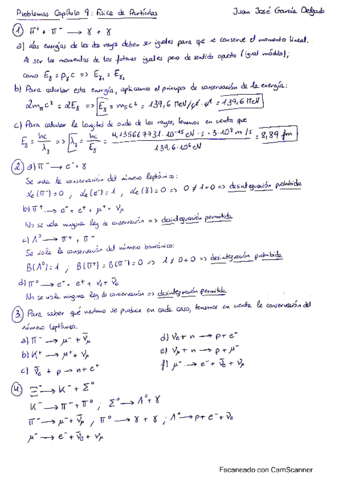 Problemas Capítulo 9: Física de Partículas
Juan José García Delgado
① π⁺ + π⁻ → γ + γ
a) Las energías de los dos rayos deben ser iguales para que se conserve el momento lineal.
Al ser los momentos de los fotones iguales pero de sentido opuesto (igual módulo);
como Eγ = pγ c => Eγ₁ = Eγ₂
b) Para calcular esta energía, aplicamos el principio de conservación de la energía:
2mπc² = 2Eγ => Eγ = mπc² = 139,6 MeV/c² · c² = 139,6 MeV
c) Para calcular la longitud de onda de los rayos, tenemos en cuenta que
Eγ = hc/λγ => λγ = hc/Eγ = 4,135667731·10⁻¹⁵ eV·s · 3·10⁸ m/s / 139,6·10⁶ eV = 8,89 fm
② a) π⁻ → e⁻ + γ
Se viola la conservación del número leptónico:
Le(π⁻) = 0, Le(e⁻) = 1, Le(γ) = 0 => 0 ≠ 1+0 => desintegración prohibida
b) π⁰ → e⁻ + e⁺ + μ⁺ +
No se viola ninguna ley de conservación => desintegración permitida
c) Λ⁰ → π⁺ + π⁻
Se viola la conservación del número bariónico:
B(Λ⁰) = 1; B(π⁺) = B(π⁻) = 0 => 1 ≠ 0+0 => desintegración prohibida
No se viola ninguna ley de conservación => desintegración permitida
③ Para saber qué neutrino se produce en cada caso, tenemos en cuenta la conservación del
número leptónico.
a) π⁻ → μ⁻ + ν̄μ
d) νe + n → p + e⁻
b) K⁺ → μ⁺ + νμ
e) νμ + n → p + μ⁻
c) ν̄e + p → n + e⁺
f) μ⁻ → e⁻ + ν̄e + νμ
④ Ξ⁻ → K⁻ + Σ⁰
K⁻ → π⁻ + π⁰; Σ⁰ → Λ⁰ + γ
π⁻ → μ⁻ + ν̄μ; π⁰ → γ + γ; Λ⁰ → p + e⁻ + ν̄e
μ⁻ → e⁻ + ν̄e + νμ
Escaneado con CamScanner